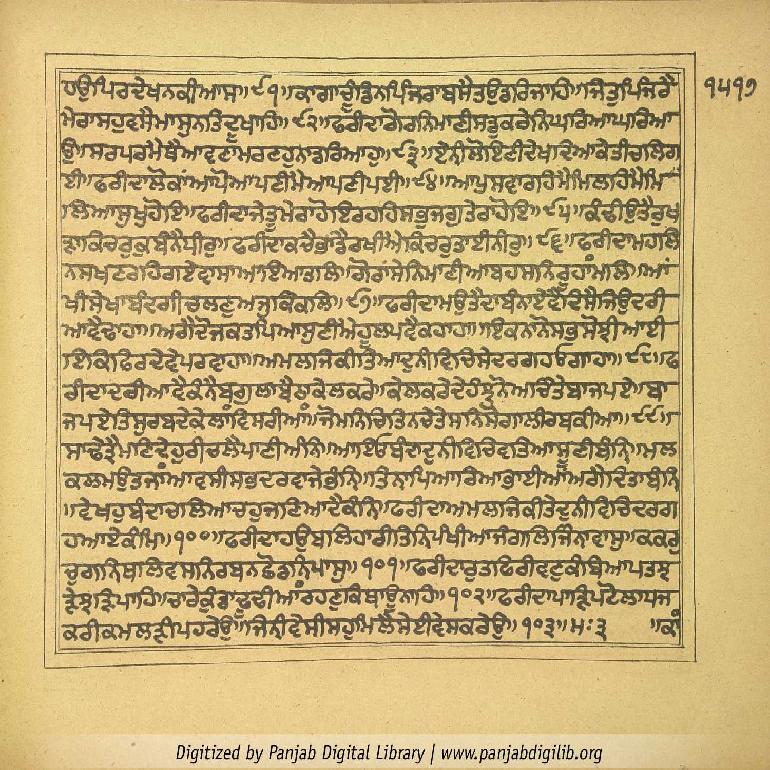 ੧੪੧੭
ਹਉਪਿਰਦੇਖਨਕੀਆਸ॥੯੧॥ਕਾਗਾਚੂੰਡਿਨਪਿੰਜਰਾਬਸੈਤਉਡਰਿਜਾਹਿ॥ਜਿਤੁਪਿੰਜਰੈ
ਮੇਰਾਸਹੁਵਸੈਮਾਸੁਨਤਿਦੂਖਾਹਿ॥੯੨॥ਫਰੀਦਾਗੋਰਨਿਮਾਣੀਸਡੁਕਰੇਨਿਘਰਿਆਘਰਿਆ
ਉ॥ਸਰਪਰਮੈਥੈਆਵਣਾਮਰਣਹੁਨਾਡਰਿਆਹੁ॥੯੩॥ਏਨੀਲੋਇਣੀਦੇਖਦਿਆਕੇਤੀਚਲਿਗ
ਈ॥ਫਰੀਦਾਲੋਕਾਂਆਪੋਆਪਣੀਮੈਆਪਣੀਪਈ॥੯੪॥ਆਪੁਸਵਾਰਹਿਮੈਮਿਲਹਿਮੈਮਿ
ਲਿਆਸੁਖੁਹੋਇ॥ਫਰੀਦਾਜੇਤੂਮੇਰਾਹੋਇਰਹਹਿਸਭੁਜਗੁਤੇਰਾਹੋਇ॥੯੫॥ਕੰਧੀਉਤੈਰੁਖ
ੜਾਕਿਚਰੁਕਬੰਨੈਧੀਰੁ॥ਫਰੀਦਾਕਚੈਭਾਂਡੈਰਖੀਐਕਿਚਰੁਤਾਈਨੀਰੁ॥੯੬॥ਫਰੀਦਾਮਹਲਿ
ਨਸਖਣਰਹਿਗਏਵਾਸਾਆਇਆਤਲਿ॥ਗੋਰਾਂਸੇਨਿਮਾਣੀਆਬਹਸਨਿਰੂਹਾਂਮਲਿ॥ਆਂ
ਖੀਸੇਖਾਬੰਦਗੀਚਲਣੁਅਜੁਕਿਕਲਿ॥੯੭॥ਫਰੀਦਾਮਉਤੈਦਾਬੰਨਾਏਵੈਦਿਸੈਜਿਉਦਰੀ
ਆਵੈਢਾਹਾ॥ਅਗੈਦੋਜਕਤਪਿਆਸੁਣੀਐਹੂਲਪਵੈਕਾਹਾਹਾ॥ਇਕਨਾਨੋਸਭਸੋਝੀਆਈ
ਇਕਿਫਿਰਦੇਵੇਪਰਵਾਹਾ॥ਅਮਲਜਿਕੀਤਿਆਦੁਨੀਵਿਚਿਸੇਦਰਗਹਓਗਾਹਾ॥੯੮॥ਫ
ਰੀਦਾਦਰੀਆਵੈਕੰਨੈਬਗੁਲਾਬੈਠਾਕੇਲਕਰੇ॥ਕੇਲਕਰੇਦੇਹੰਝਨੋਅਚਿੰਤੇਬਾਜਪਏ॥ਬਾ
ਜਪਏਤਿਸੁਰਬਦੇਕੇਲਾਂਵਿਸਰੀਆਂ॥ਜੋਮਨਿਚਿਤਿਨਚੇਤੇਸਨਿਸੋਗਾਲੀਰਬਕੀਆ॥੯੯॥
ਸਾਢੇਤ੍ਰੈਮਣਦੇਹੁਰੀਚਲੈਪਾਣੀਅੰਨਿ॥ਆਇਓਬੰਦਾਦੁਨੀਵਿਚਿਵਤਿਆਸੂਣੀਬੰਨਿ॥ਮਲ
ਕਲਮਉਤਜਾਂਆਵਸੀਸਭਦਰਵਾਜੇਭੰਨਿ॥ਤਿਨਾਪਿਆਰਿਆਭਾਈਆਂਅਗੈਦਿਤਾਬੰਨਿ
॥ਵੇਖਹੁਬੰਦਾਚਲਿਆਚਹੁਜਣਿਆਦੈਕੰਨਿ॥ਫਰੀਦਾਅਮਲਜਿਕੀਤੇਦੁਨੀਵਿਚਿਦਰਗ
ਹਆਏਕੰਮਿ॥੧੦੦॥ਫਰੀਦਾਹਉਬਲਿਹਾਰੀਤਿਨਿਪੰਖੀਆਜੰਗਲਿਜਿੰਨਾਵਾਸੁ॥ਕਕਰੁ
ਚੁਗਨਿਥਲਿਵਸਨਿਰਬਨਛੋਡਨਿਪਾਸੁ॥੧੦੧॥ਫਰੀਦਾਰੁਤਫਿਰੀਵਣੁਕੰਬਿਆਪਤਝ
ੜੇਝੜਿਪਾਹਿ॥ਚਾਰੇਕੁੰਡਾਢੂਢੀਆਂਰਹਣੁਕਿਥਾਊਨਾਹਿ॥੧੦੨॥ਫਰੀਦਾਪਾੜਿਪਟੋਲਾਧਜ
ਕਰੀਕਮਲੜੀਪਹਰੇਉ॥ਜਿਨੀਵੇਸੀਸਹੁਮਿਲੈਸੇਈਵੇਸਕਰੇਉ॥੧੦੩॥ਮਃ੩ ॥ਕਾਂ
Digitized by Panjab Digital Library | www.panjabdigilib.org